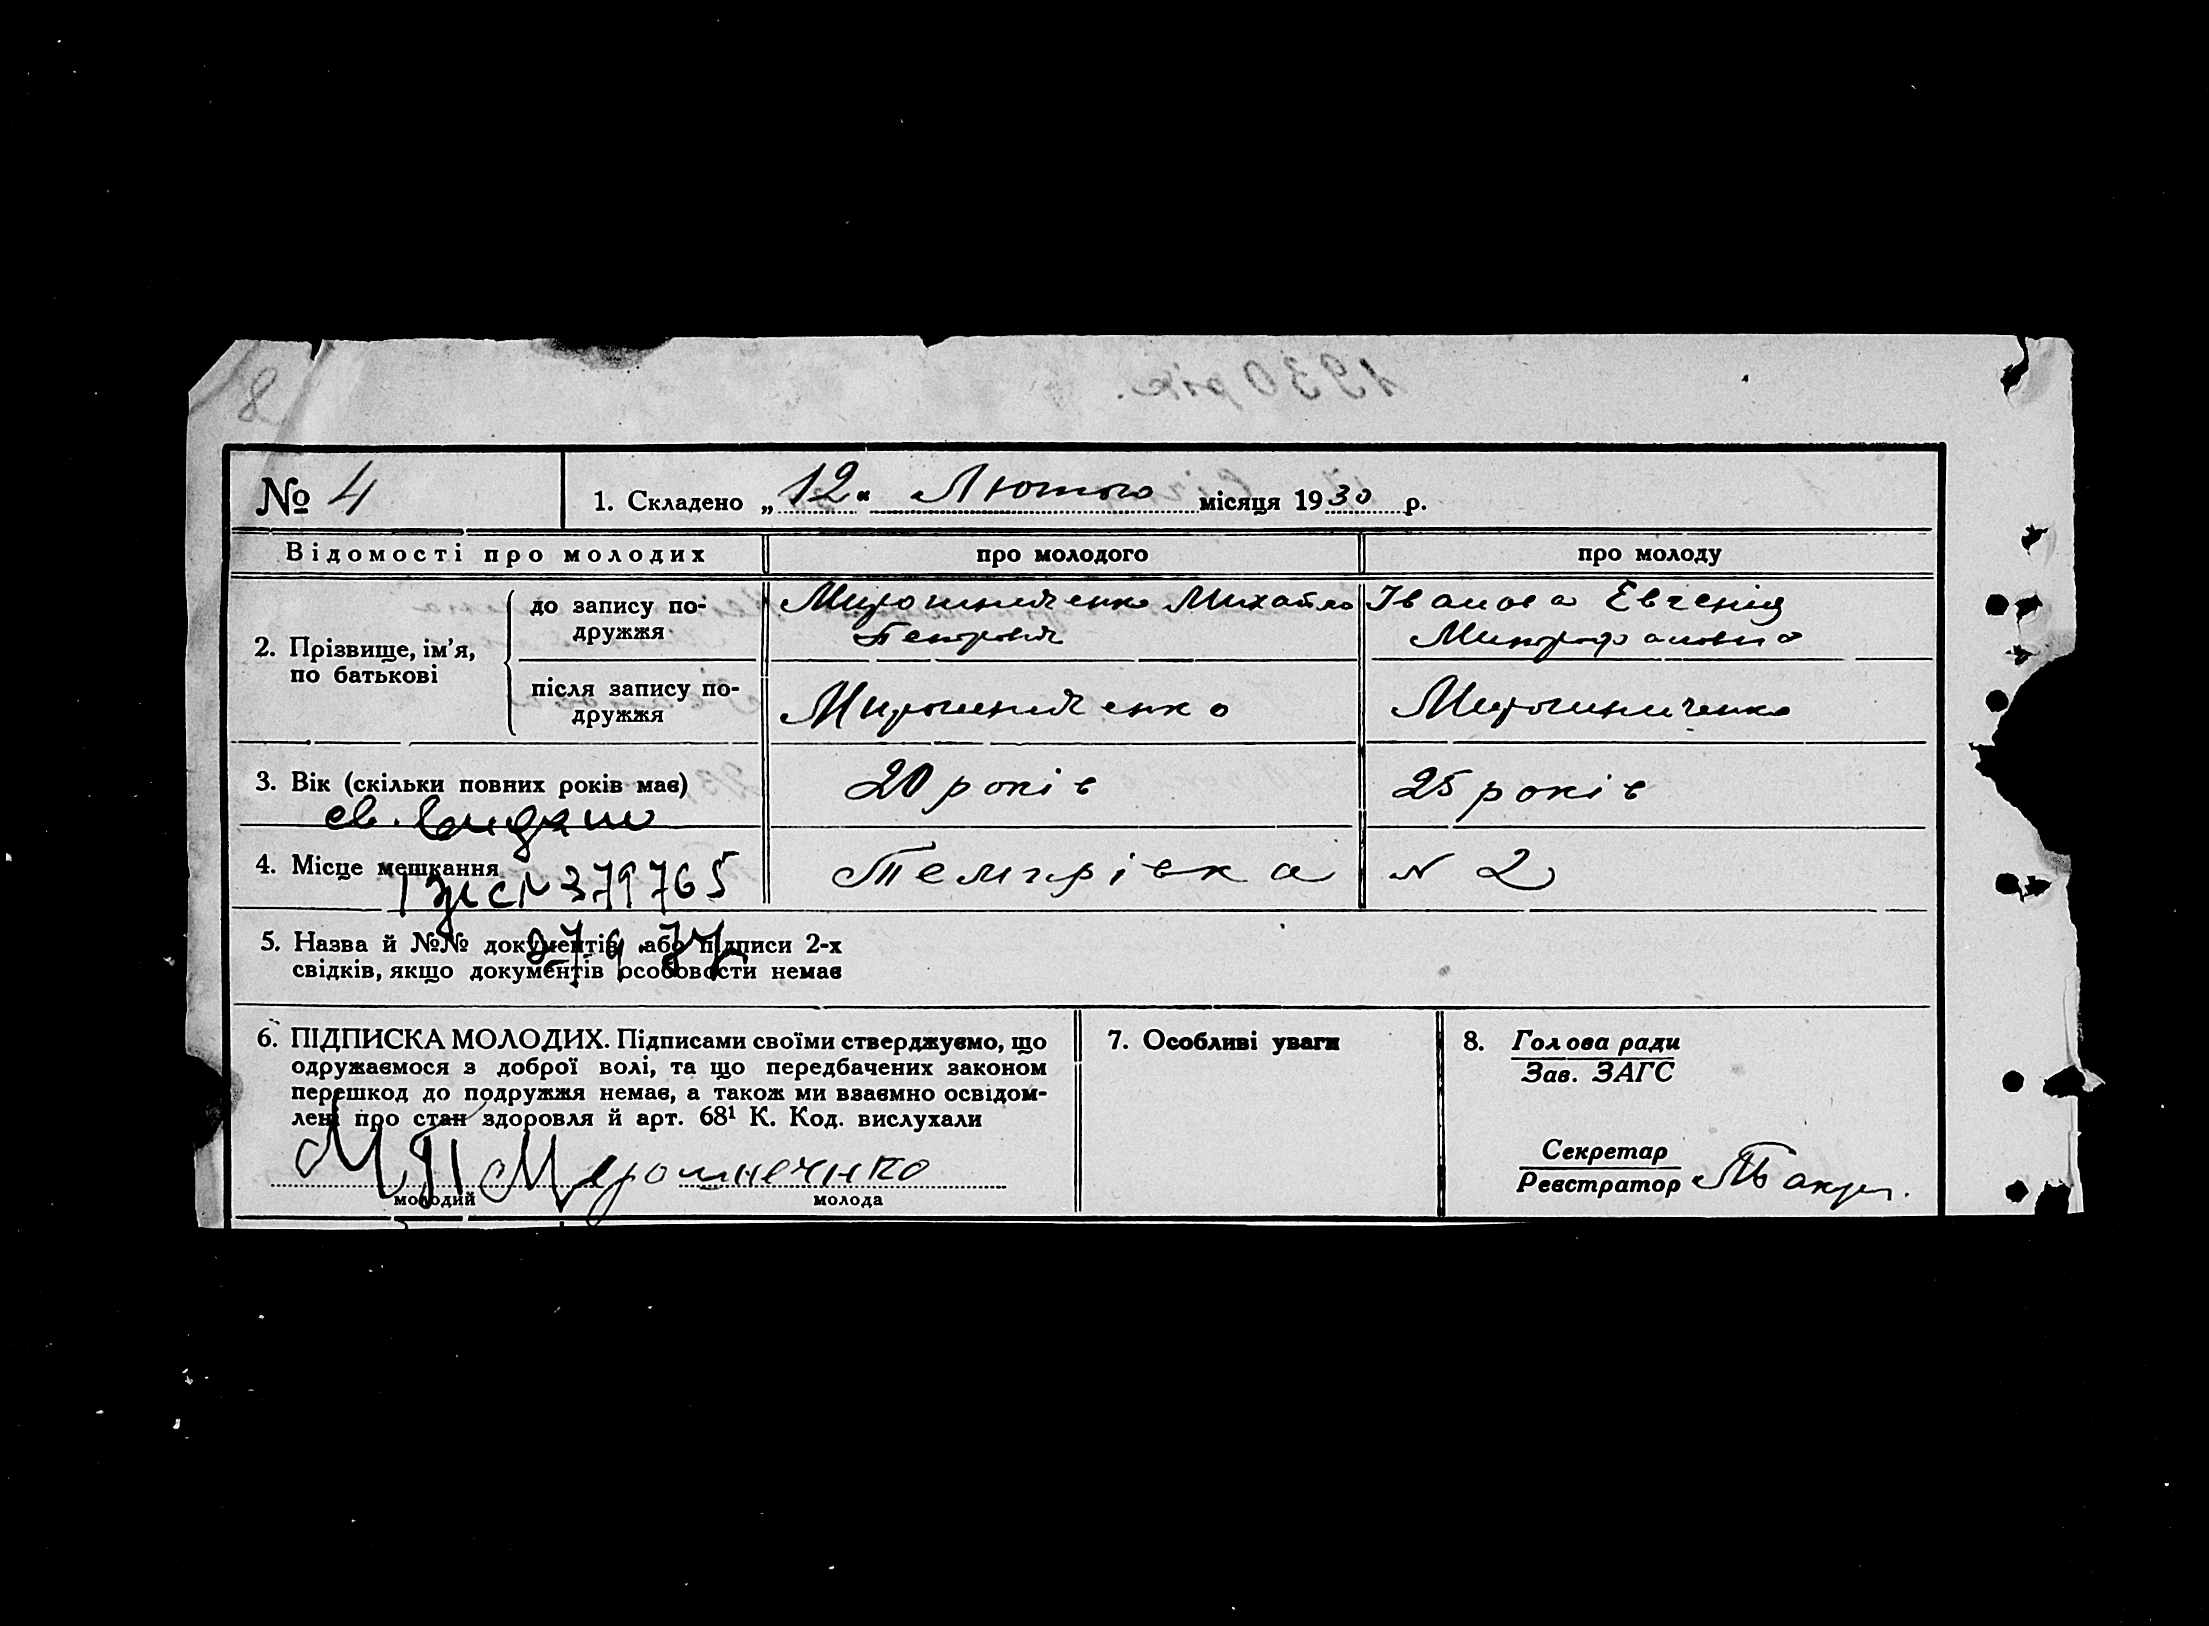 8
1930 рік.
№ 4
1. Складено „12“ Лютого місяця 1930 р.
Відомості про молодих
про молодого
про молоду
2. Прізвище, ім’я, по батькові
до запису по-
дружжя
Мирошниченко Михайло
Петрович
Іванова Евгенія
Митрофановна
після запису по-
дружжя
Мирошниченко
Мирошниченко
3. Вік (скільки повних років має)
20 років
25 років
св. выдано
4. Місце мешкання
Темирівка
N 2
N 379765
5. Назва й №№ документів або підписи 2-х
свідків, якщо документів особовости немає
27.9.77
6. ПІДПИСКА МОЛОДИХ. Підписами своїми стверджуємо, що
одружаємося з доброї волі, та що передбачених законом
перешкод до подружжя немає, а також ми взаємно освідом-
лені про стан здоровля й арт. 68¹ К. Код. вислухали
молодий
молода
7. Особливі уваги
8. Голова ради
Зав. ЗАГС
Секретар
Реєстратор